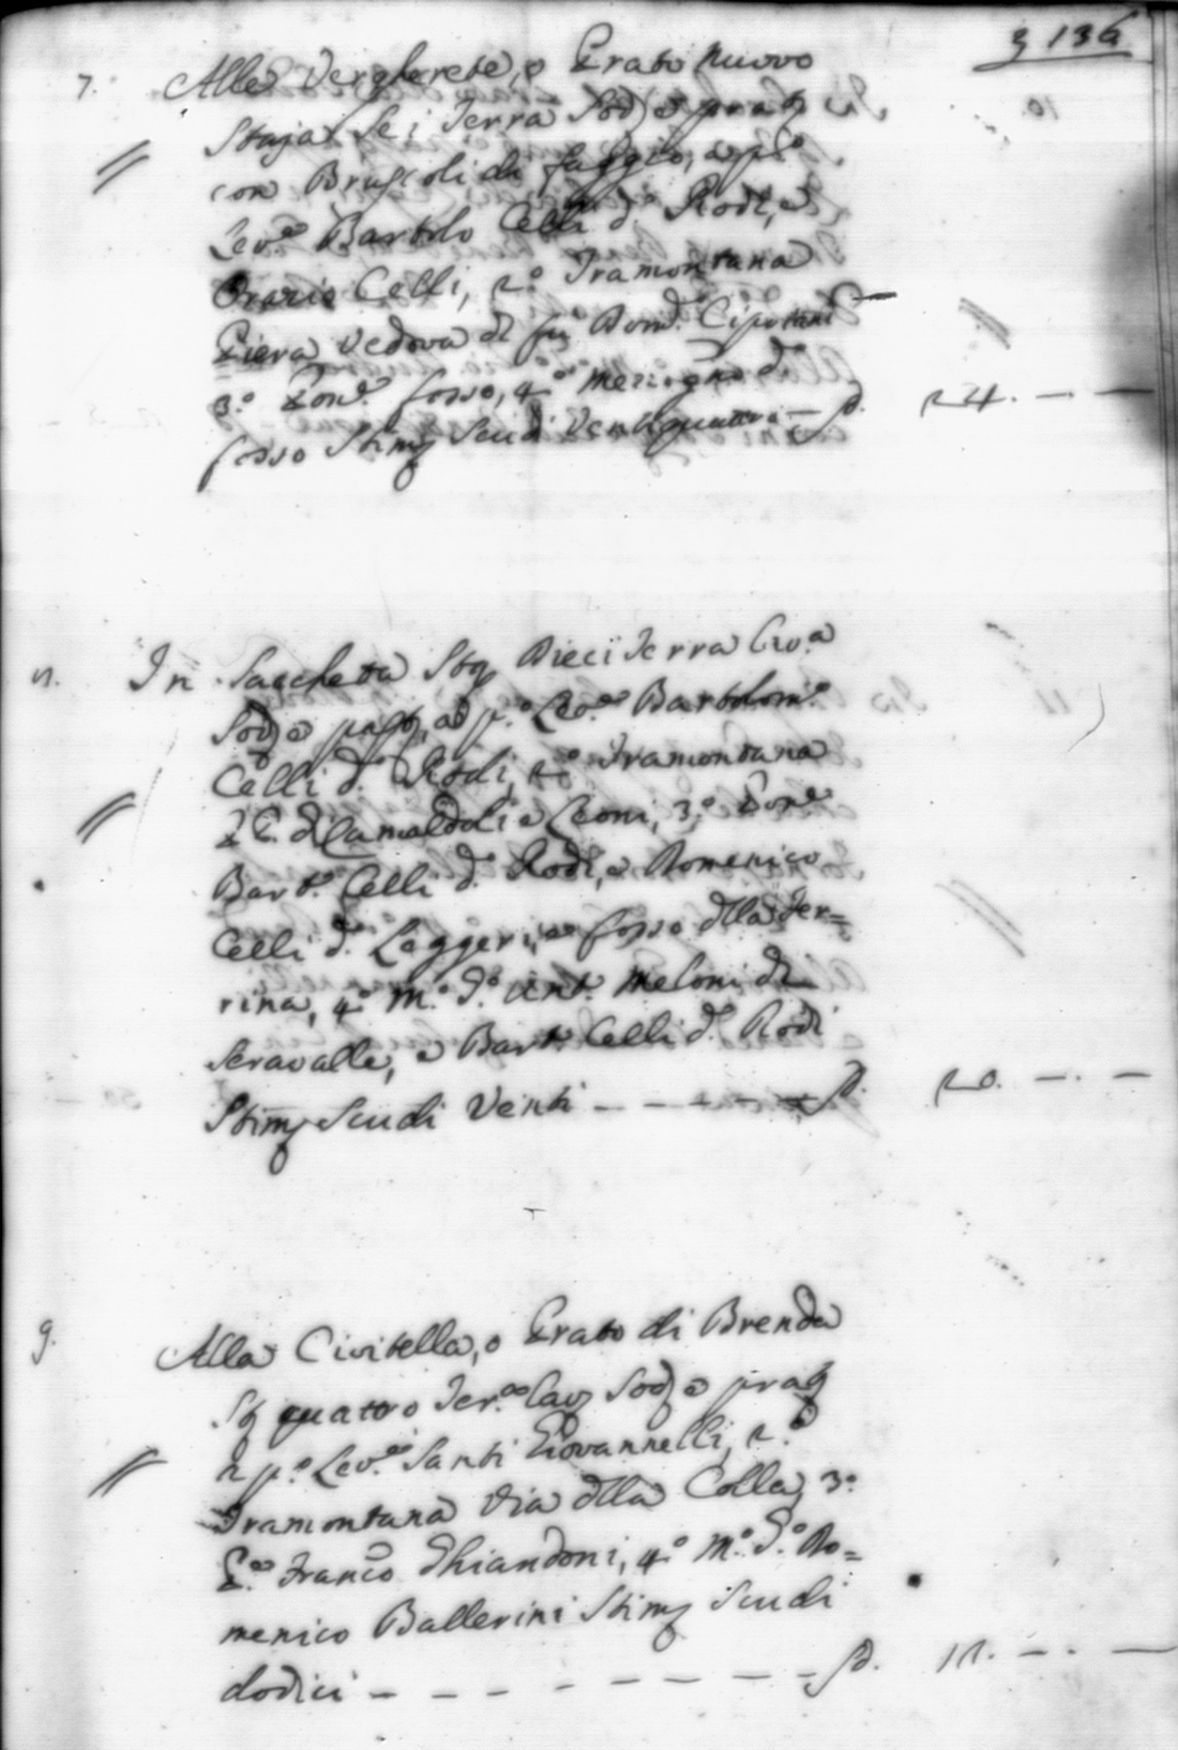 136
7. Alle Vergherete, o Prato nuovo
Staja Sei Terra Sod, e prat
con Bruscoli di faggio, a p.º
Lev.e Bartolo Celli d.º Rodi, e
Orazio Celli, 2.º Tramontana
Piera Vedova di Dom.º Cipriani
3.º Pon.e fosso, 4.º mezzogno d.º
fosso Stim Scudi Ventiquattro — 24. — . —
In Saccheta Sta Dieci Terra Lav.a
Sod, e past, a p.º Lev.e Bartolom.º
Celli d.º Rodi, 2.º Tramontana
di Camaldoli e Leoni, 3.º Pon.e
Bart.º Celli d.º Rodi, e Domenico
Celli d.º Leggeri, e fosso dlla Fer=
rina, 4.º M.º d.º Ant.º Meloni di
Seravalle, e Bart.º Celli d.º Rodi
Stim Scudi Venti — — — — 20. — . —
9. Alla Civitella, o Prato di Brenda
St quattro Ter.a Lav Sod, e prat
a p.º Lev.e Santi Giovannelli, 2.º
Tramontana Via dlla Colla, 3.º
P.e Franco Ghiandoni, 4.º M.º d.º Do=
menico Ballerini Stim Scudi
dodici — — — — — — — 12. — . —